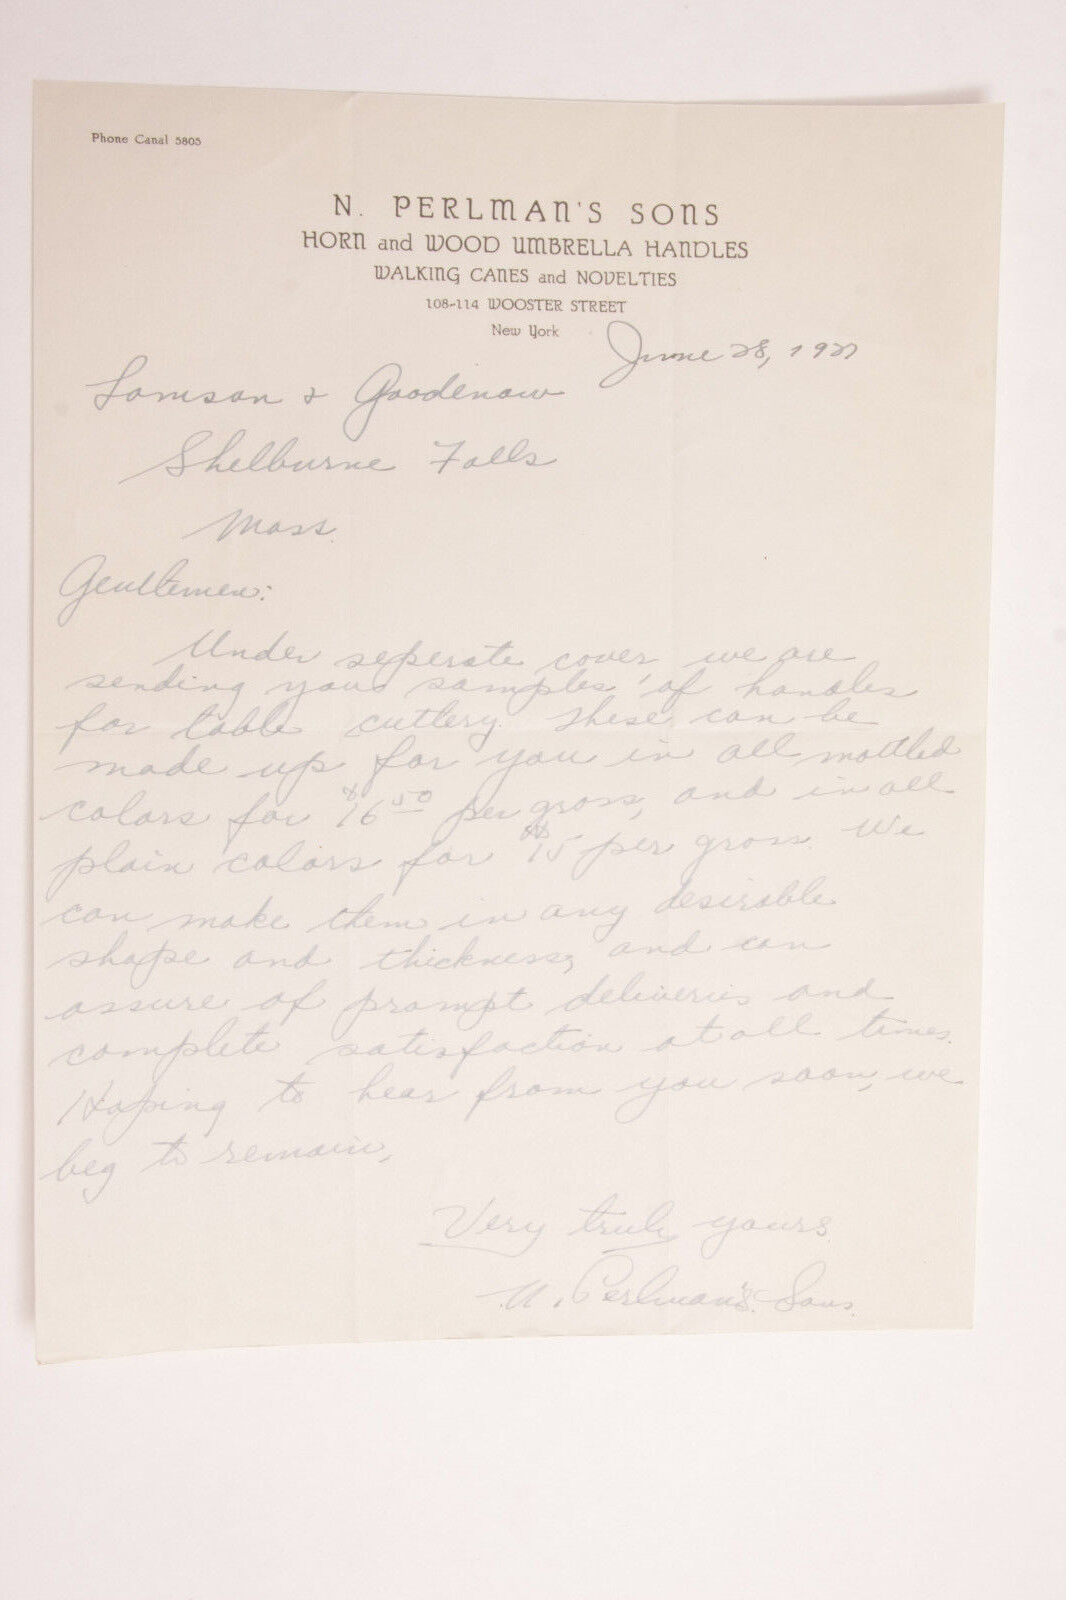 Phone Canal 5805
N. PERLMAN'S SONS
HORN and WOOD UMBRELLA HANDLES
WALKING CANES and NOVELTIES
108-114 WOOSTER STREET
New York
June 28, 1927
Lamson & Goodenow
Shelburne Falls
Mass.
Gentlemen:
Under seperate cover, we are
sending you samples of handles
for table cutlery. These can be
made up for you in all mottled
colors for $16.50 per gross, and in all
plain colors for $15 per gross. We
can make them in any desirable
shape and thickness, and can
assure of prompt deliveries and
complete satisfaction at all times.
Hoping to hear from you soon, we
beg to remain,
Very truly yours
N. Perlman's Sons.